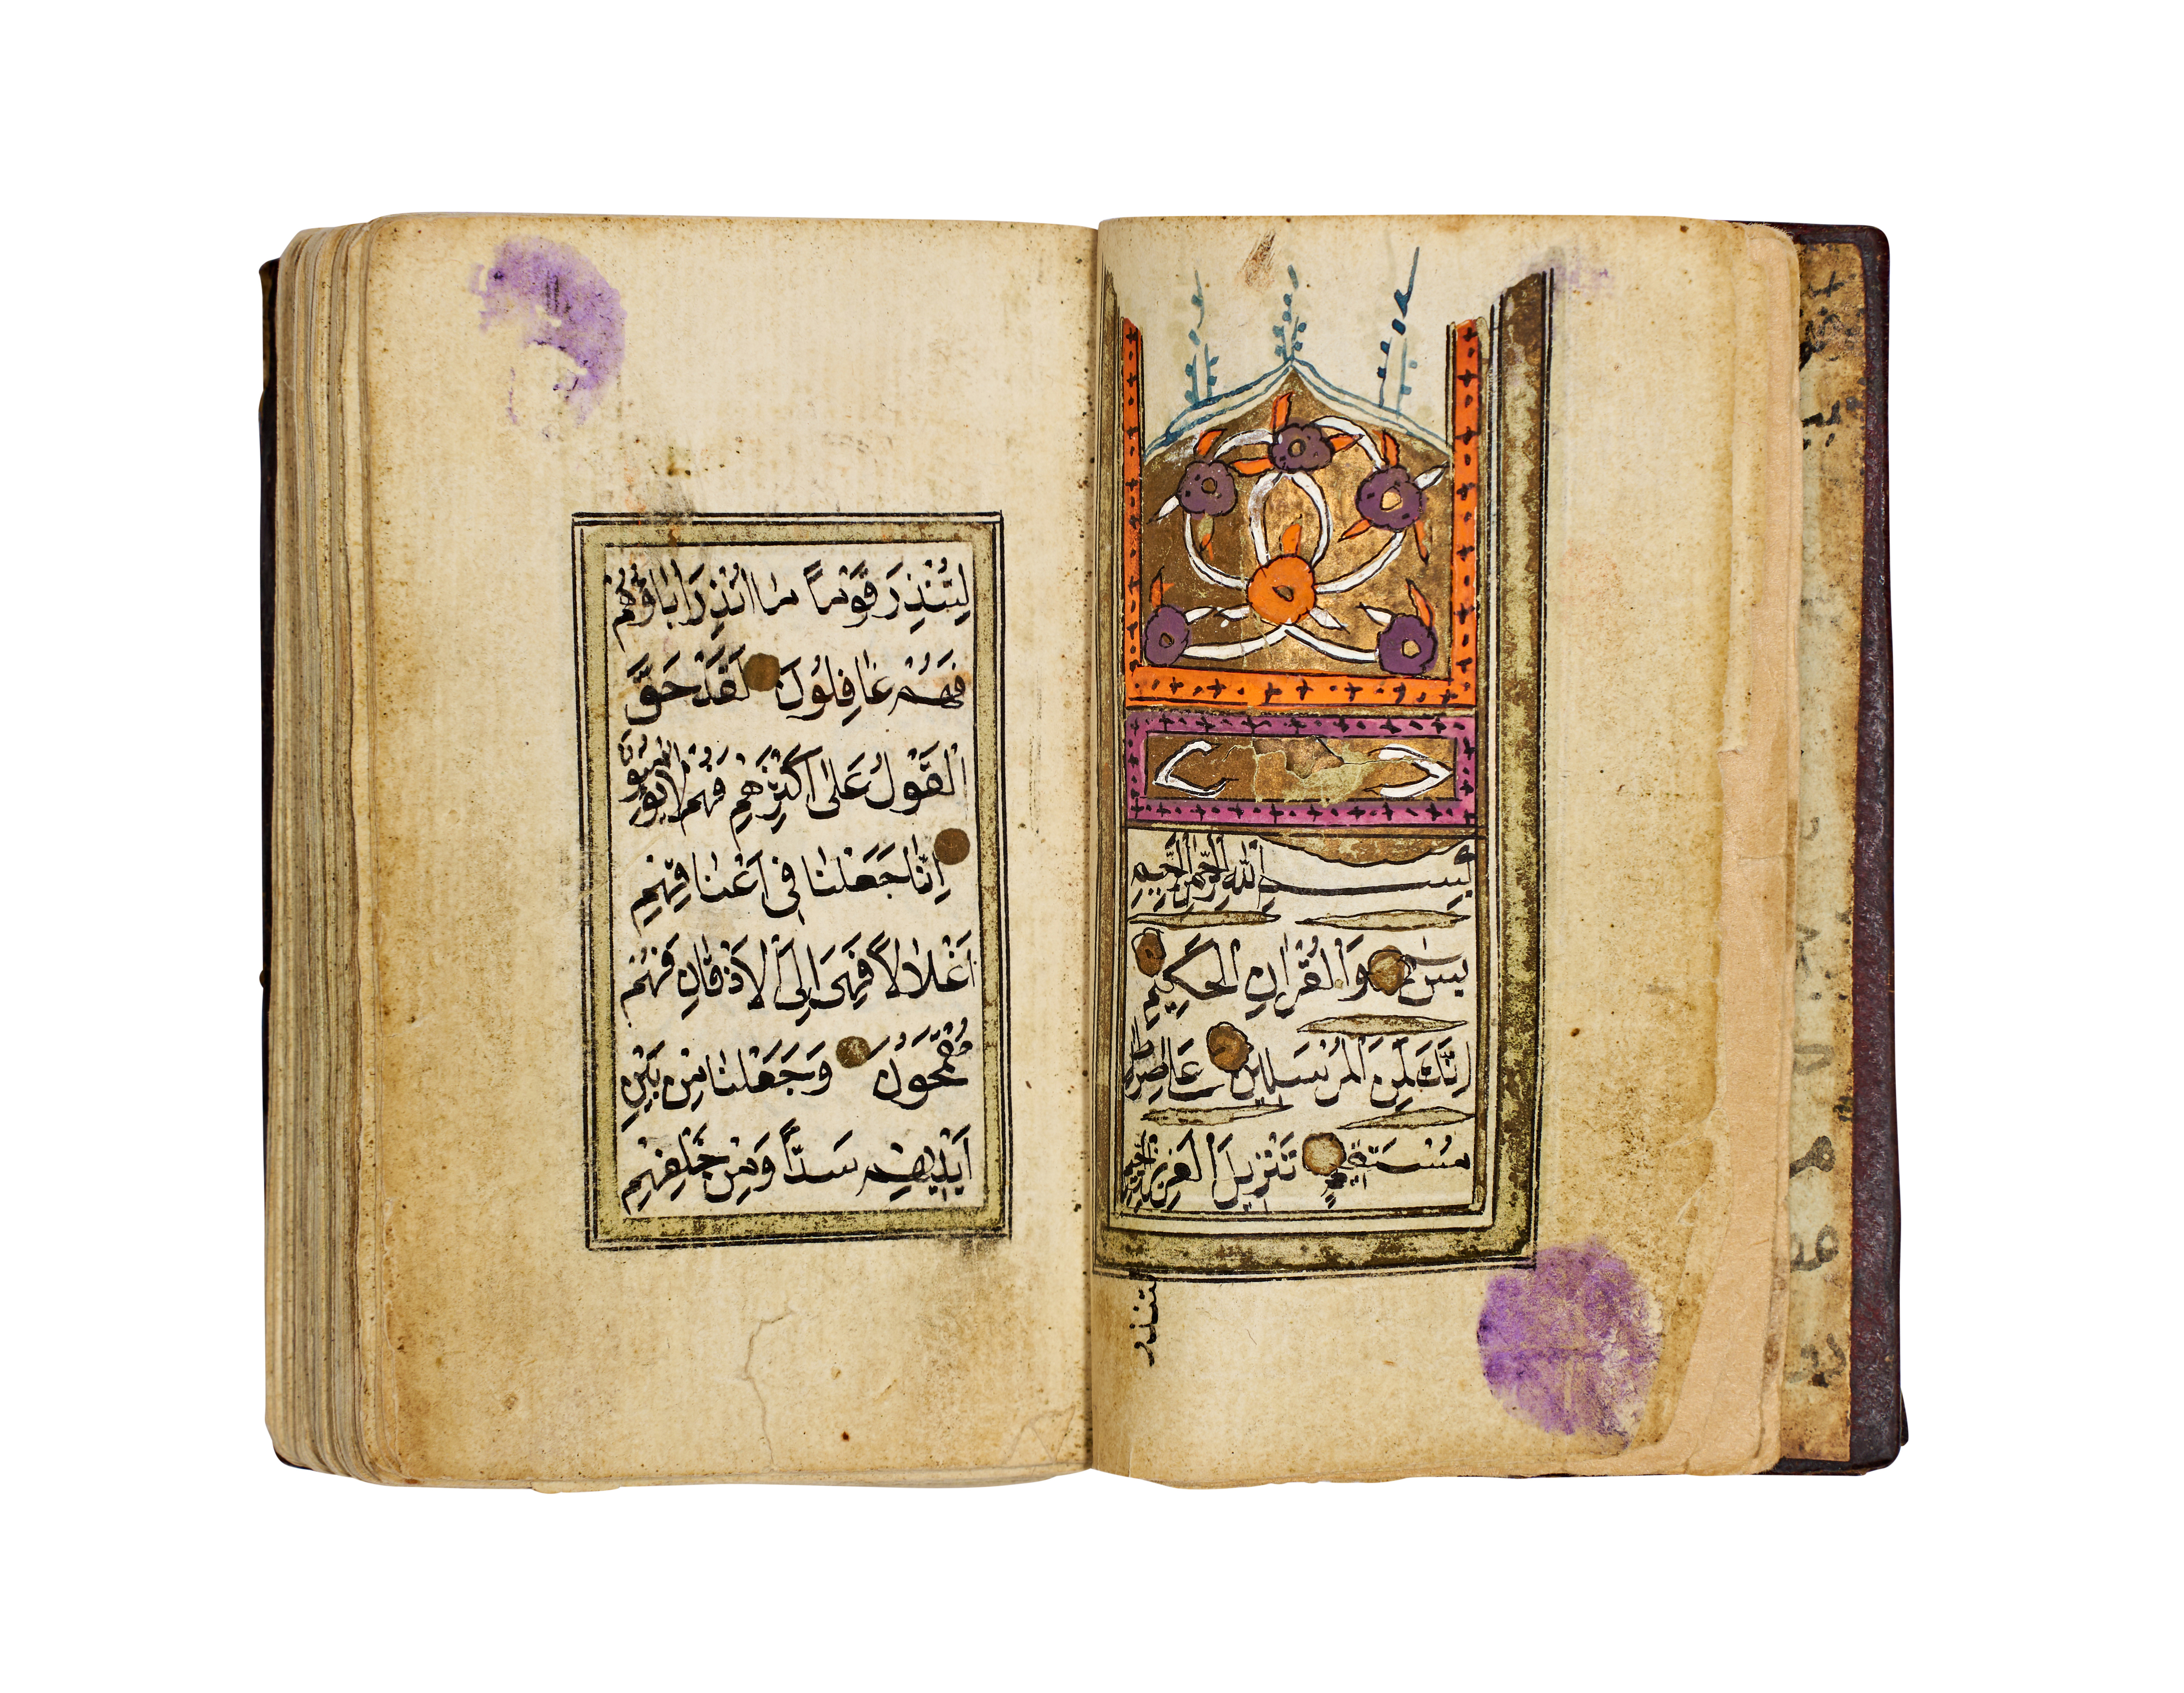 بِسْمِ اللّٰهِ الرَّحْمٰنِ الرَّحِيمِ
يسٓ وَالْقُرْاٰنِ الْحَكِيمِ
اِنَّكَ لَمِنَ الْمُرْسَلِينَ عَلٰى صِرَاطٍ
مُسْتَقِيمٍ تَنْزِيلَ الْعَزِيزِ الرَّحِيمِ
لتنذر
لِتُنْذِرَ قَوْمًا مَا اُنْذِرَ اٰبَاؤُهُمْ
فَهُمْ غَافِلُونَ لَقَدْ حَقَّ
الْقَوْلُ عَلٰى اَكْثَرِهِمْ فَهُمْ لَا يُؤْمِنُونَ
اِنَّا جَعَلْنَا فِى اَعْنَاقِهِمْ
اَغْلَالًا فَهِىَ اِلَى الْاَذْقَانِ فَهُمْ
مُقْمَحُونَ وَجَعَلْنَا مِنْ بَيْنِ
اَيْدِيهِمْ سَدًّا وَمِنْ خَلْفِهِمْ